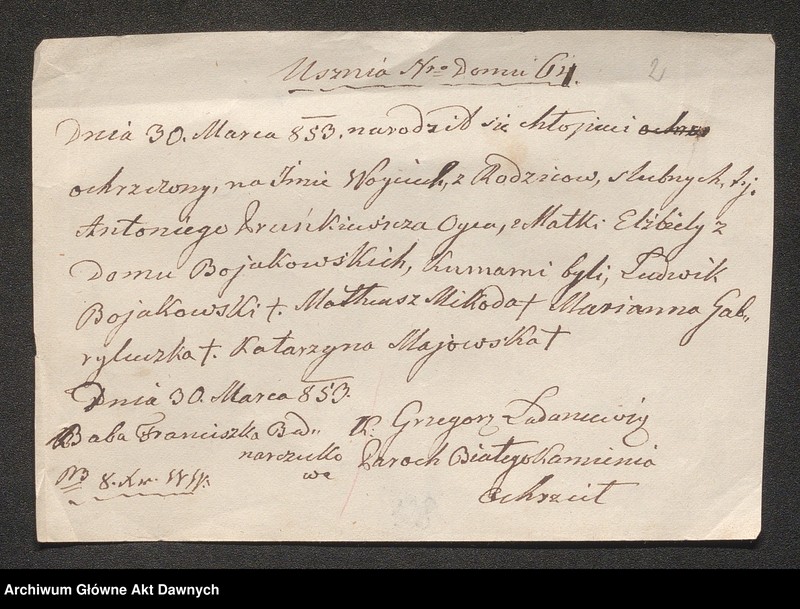 Usznia Nro Domu
2
Dnia 30. Marca 853. narodził się chłopiec
ochrzczony, na Imie Wojciech, z Rodzicow, slubnych, tj.
Antoniego Oyca, z Matki Elżbiety z
Domu Bojakowskich, Kumami byli, Ludwik
Bojakowski †. Matheusz Mikoda † Marianna Gab„
ryluczka †. Katarzyna Majowska †
Dnia 30. Marca 853.
Baba Franciszka Bad„
narczuko
we
X: Grzegorz
Paroch Białego Kamienia
ochrzcił
NB 8.
Archiwum Główne Akt Dawnych